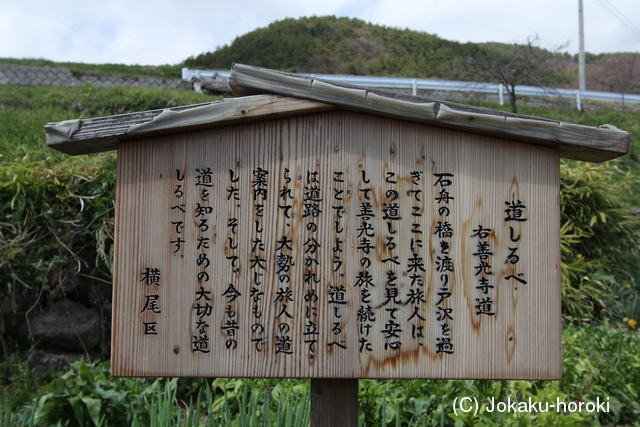 道しるべ
右善光寺道
石舟の橋を渡り戸沢を過
ぎてここに来た旅人は、
この道しるべを見て安心
して善光寺の旅を続けた
ことでしよう。道しるべ
は道路の分かれめに立て
られて、大勢の旅人の道
案内をした大じなもので
した。そして、今も昔の
道を知るための大切な道
しるべです。
横尾区
(C) Jokaku-horoki